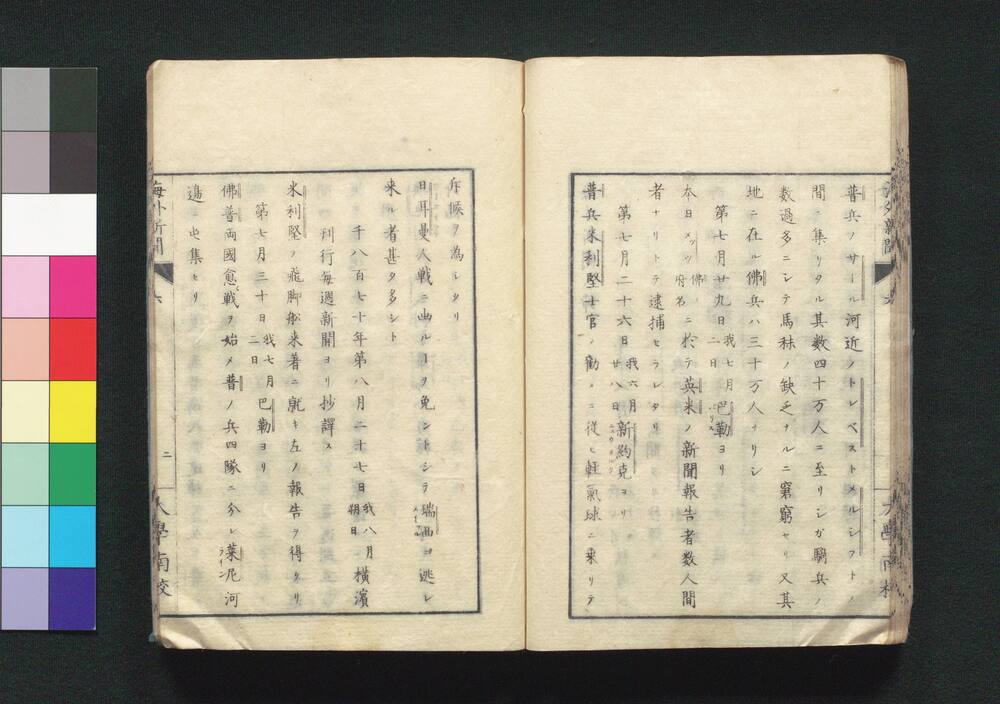 普兵ノサール河近ノトレベストメルシフトノ
間ニ集リタル其数四十万人ニ至リシガ騎兵ノ
数過多ニシテ馬秣ノ缺乏ナルニ窘窮セリ又其
地ニ在ル佛兵ハ三十万人ナリシ
第七月廿九日我七月二日巴勒ヨリ
本日メッツ佛ノ府名ニ於テ英米ノ新聞報告者数人間
者ナリトテ逮捕セラレタリ
第七月二十六日我六月廿八日新約克ヨリ
普兵米利堅士官ノ勧メニ従ヒ軽氣球ニ乗リテ
斥候ヲ為シタリ
日耳曼人戦ニ出ルヿヲ免ントシテ瑞西ヨリ逃レ
来ル者甚タ多シト
千八百七十年第八月二十七日我八月朔日横濱
刊行毎週新聞ヨリ抄譯ス
米利堅ノ飛脚舩来着ニ就キ左ノ報告ヲ得タリ
第七月三十日我七月二日巴勒ヨリ
佛普両國愈戦ヲ始メ普ノ兵四隊ニ分レ莱尼河ライン
邉ニ屯集セリ
海外新聞
二
大學南校